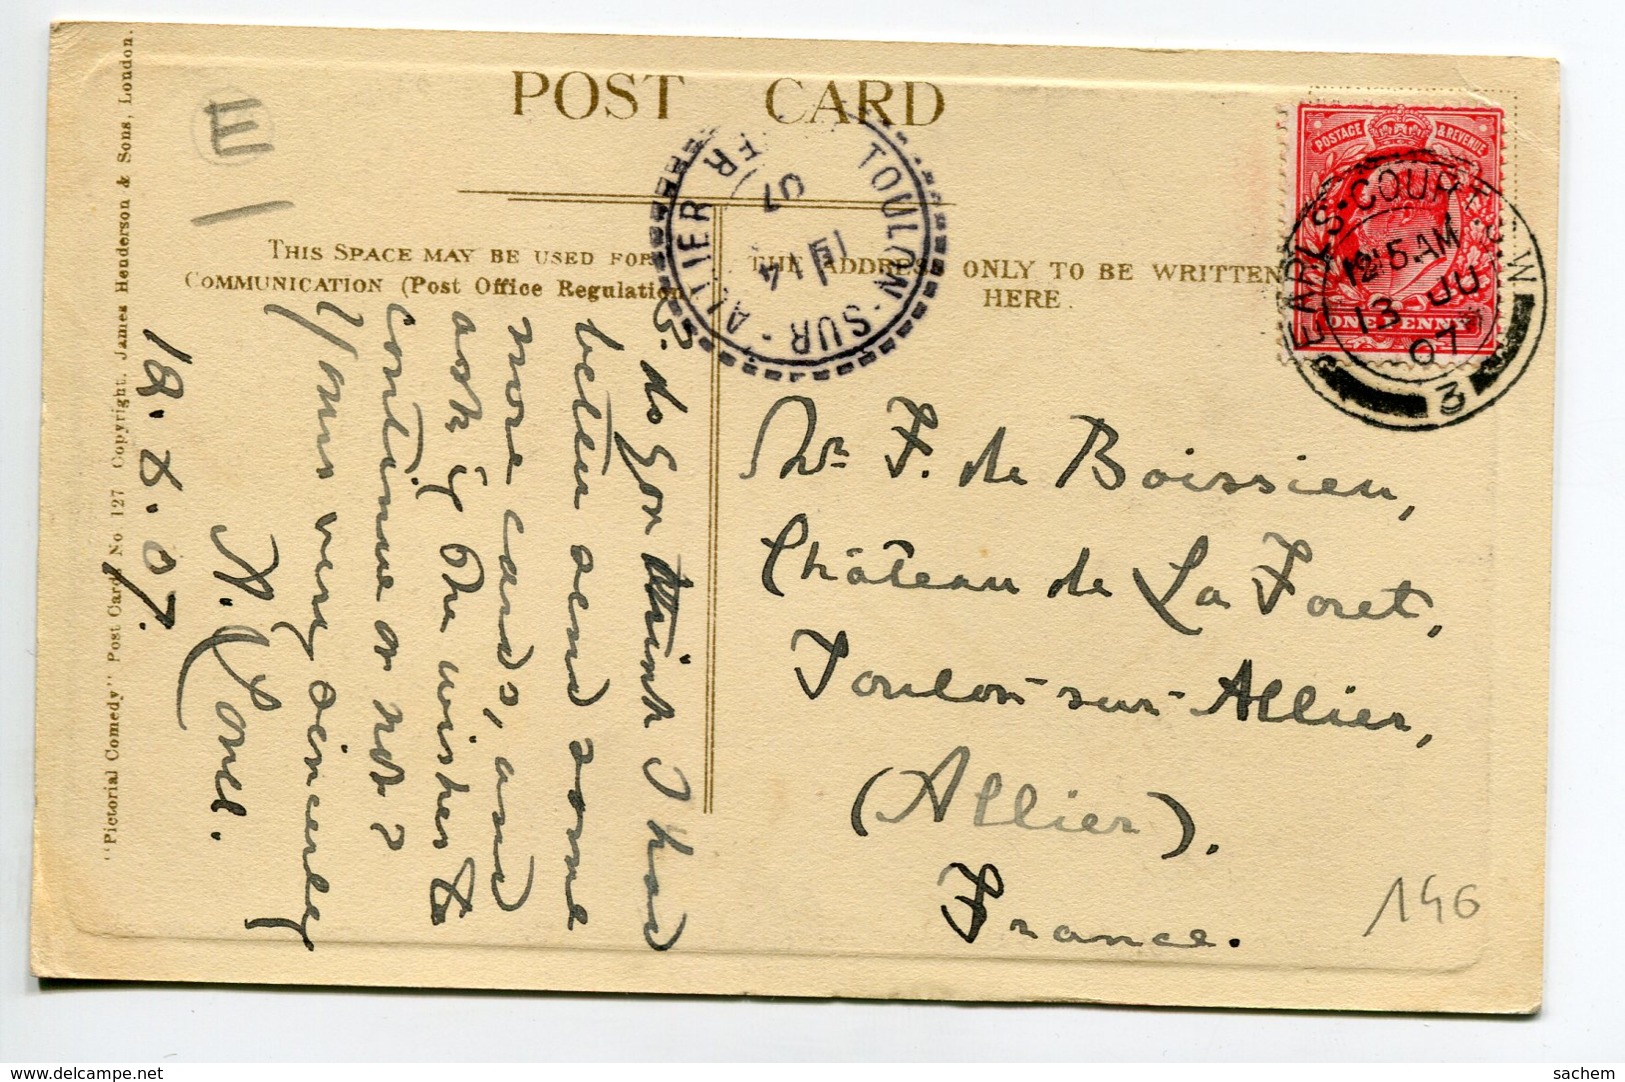 POST CARD
THIS SPACE MAY BE USED FOR
COMMUNICATION (Post Office Regulation
THE ADDRESS ONLY TO BE WRITTEN
HERE.
"Pictorial Comedy" Post Cards No 127 Copyright. James Henderson & Sons, London.
E
POSTAGE & REVENUE
ONE PENNY
EARLS·COURT·S.W
12 15 AM
13 JU
07
3
TOULON-SUR-ALLIER
14
07
do you think I had
better send some
more cards, and
ask if she wishes to
continue or not?
Yours very sincerely
Mr F. de Boissieu,
Château de La Foret,
Toulon-sur-Allier,
(Allier).
France.
146
sachem